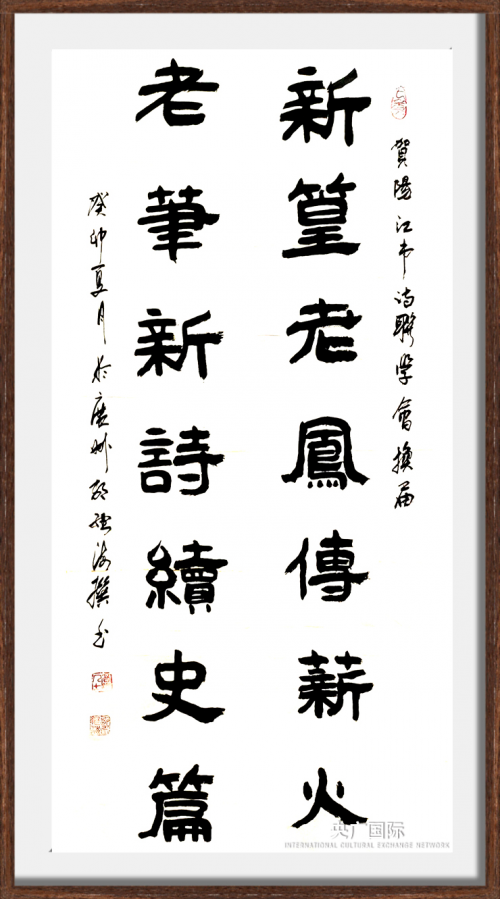 賀陽江市诗聯學會換届
新篁老鳳傳薪火
老筆新詩續史篇
癸卯夏月於廣州撰书
央广国际
INTERNATIONAL CULTURAL EXCHANGE NETWORK